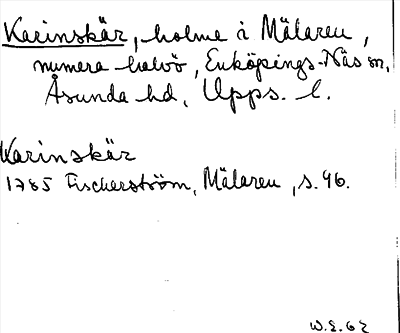 Karinskär, holme i Mälaren,
numera halvö, Enköpings-Näs sn,
Åsunda hd, Upps. l.
Karinskär
1785 Fischerström, Mälaren, s. 96.
W.E. 62